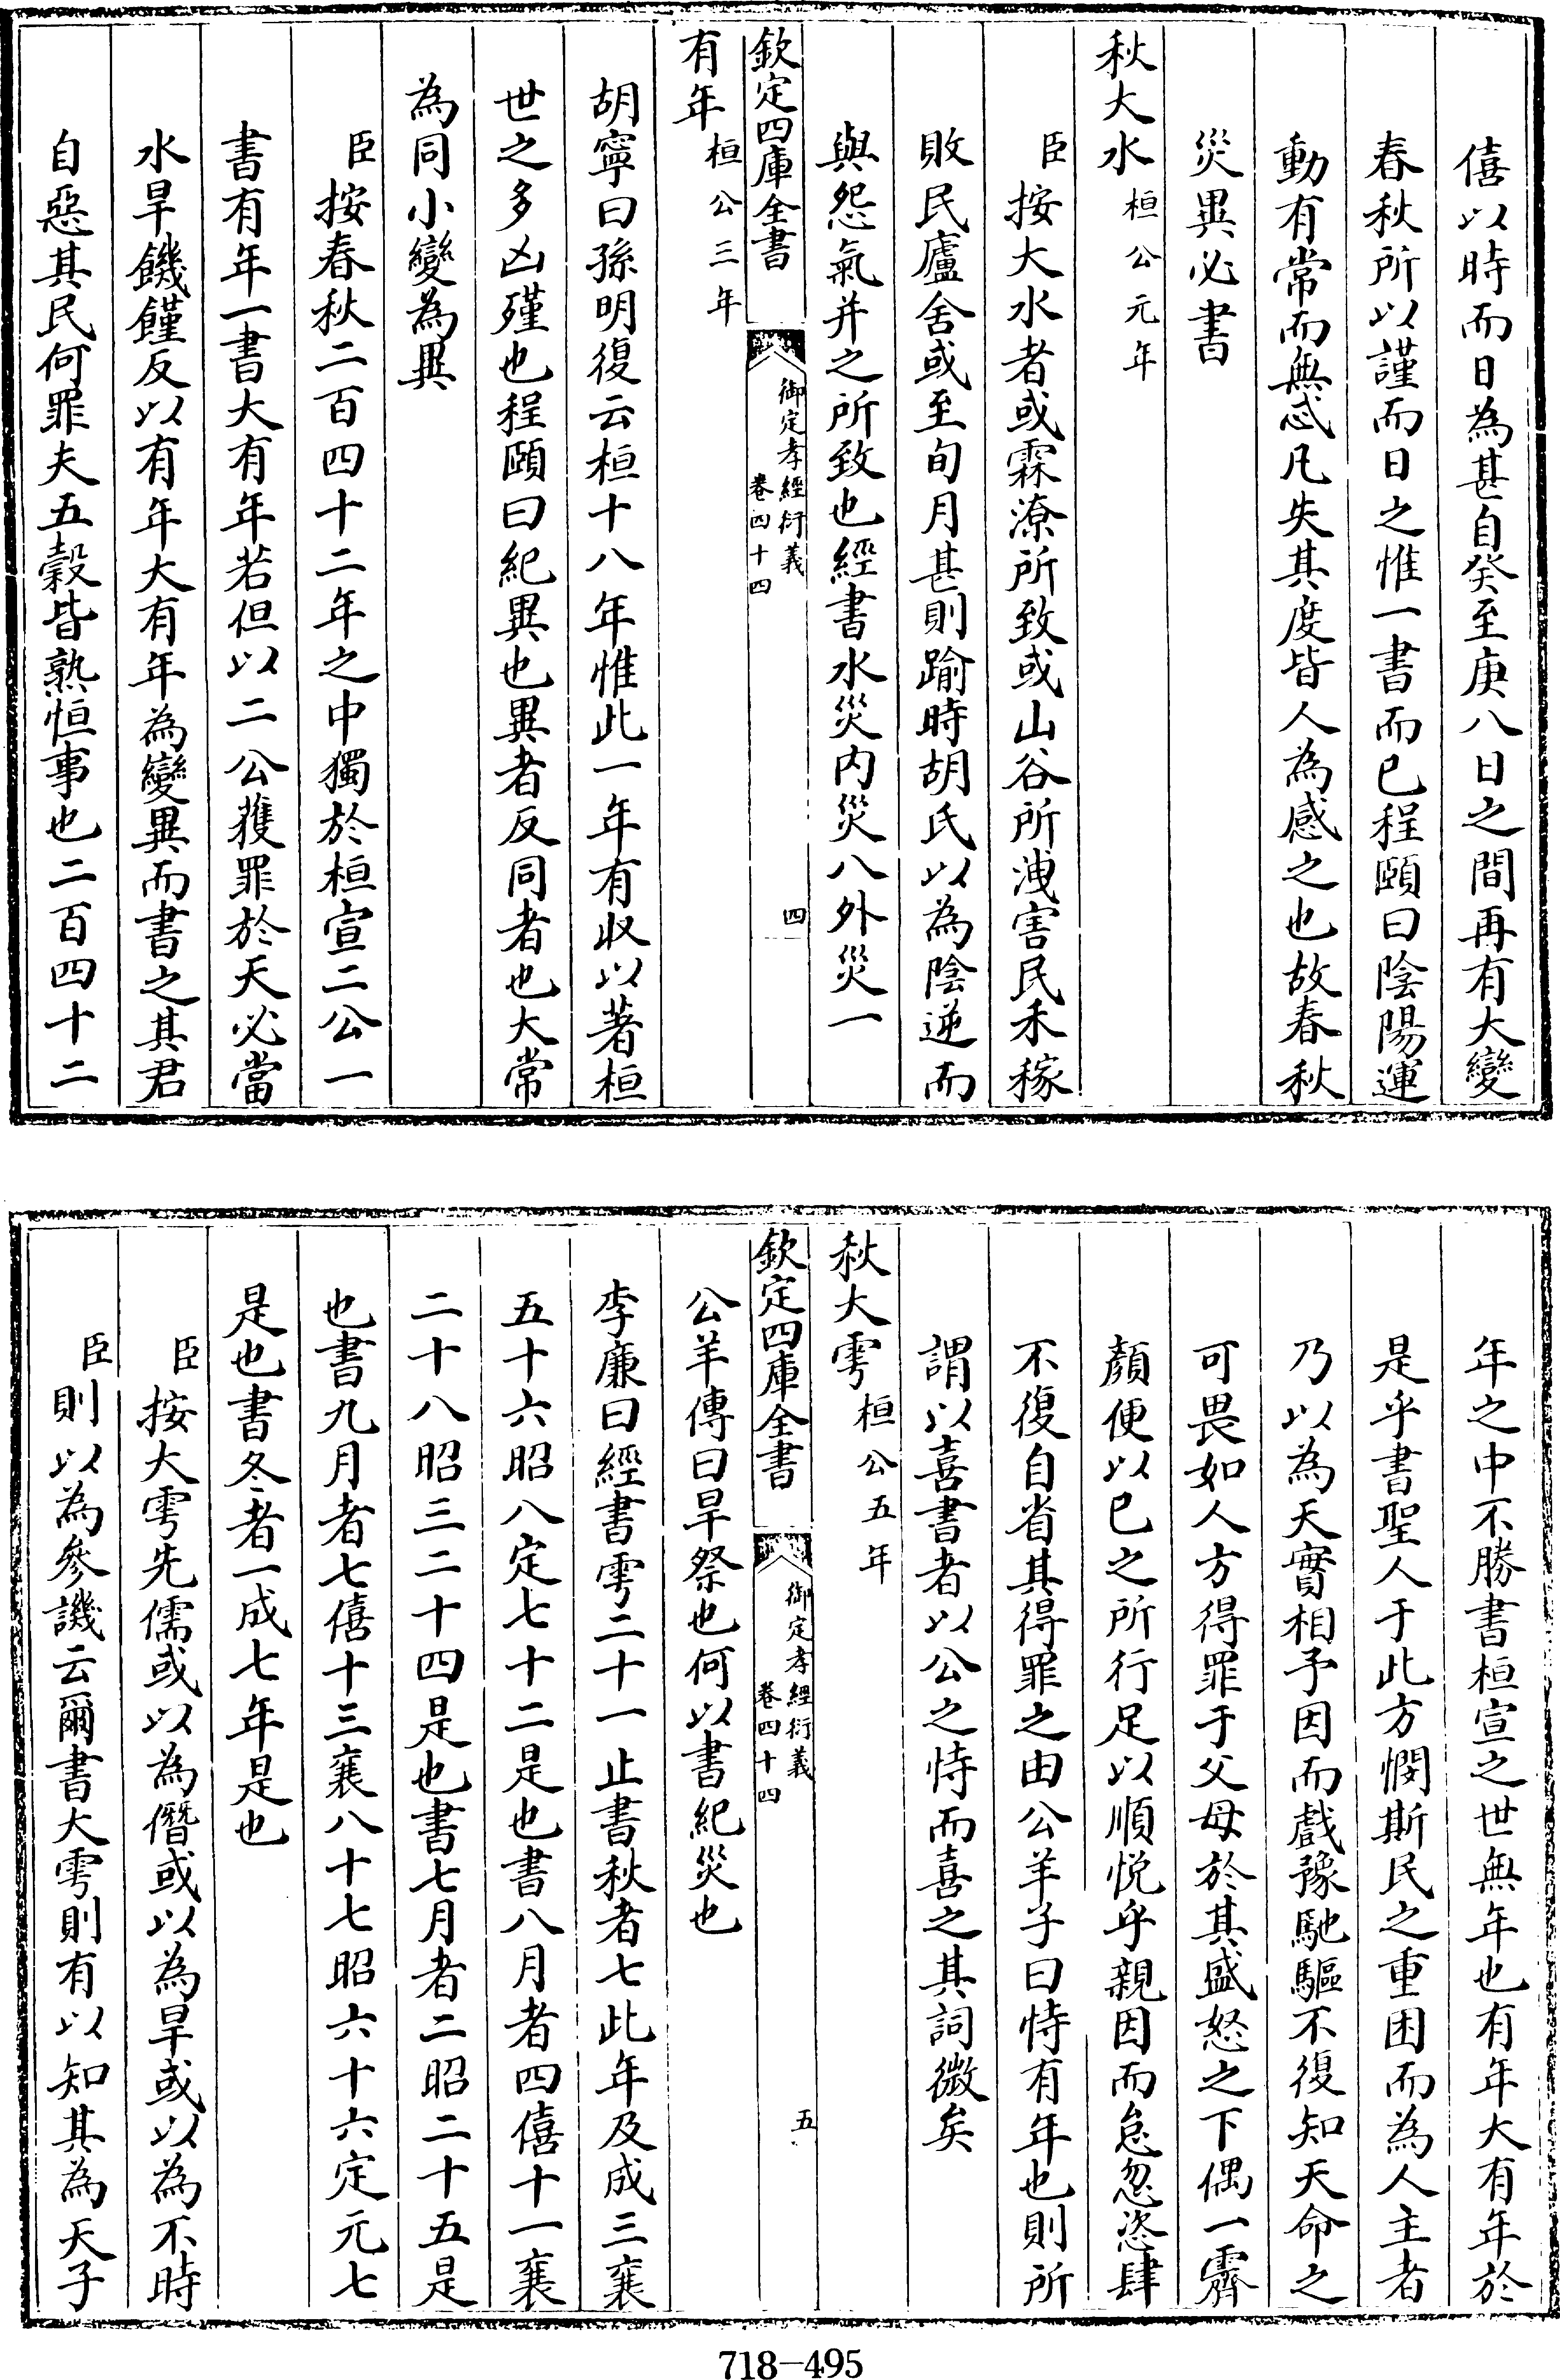 僖以時而日為甚自癸至庚八日之間再有大變
春秋所以謹而日之惟一書而已程頤曰陰陽運
動有常而無忒凡失其度皆人為感之也故春秋
災異必書
秋大水桓公元年
臣按大水者或霖潦所致或山谷所洩害民禾稼
敗民廬舍或至旬月甚則踰時胡氏以為陰逆而
與怨氣并之所致也經書水災内災八外災一
欽定四庫全書
御定孝經衍義
卷四十四
四
有年桓公三年
胡寧曰孫明復云桓十八年惟此一年有收以著桓
世之多凶殣也程頤曰紀異也異者反同者也大常
為同小變為異
臣按春秋二百四十二年之中獨於桓宣二公一
書有年一書大有年若但以二公獲罪於天必當
水旱饑饉反以有年大有年為變異而書之其君
自惡其民何罪夫五穀皆熟恒事也二百四十二
年之中不勝書桓宣之世無年也有年大有年於
是乎書聖人于此方憫斯民之重困而為人主者
乃以為天實相予因而戲豫馳驅不復知天命之
可畏如人方得罪于父母於其盛怒之下偶一霽
顏便以已之所行足以順悅乎親因而怠忽恣肆
不復自省其得罪之由公羊子曰恃有年也則所
謂以喜書者以公之恃而喜之其詞微矣
秋大雩桓公五年
欽定四庫全書
御定孝經衍義
卷四十四
五
公羊傳曰旱祭也何以書紀災也
李廉曰經書雩二十一止書秋者七此年及成三襄
五十六昭八定七十二是也書八月者四僖十一襄
二十八昭三二十四是也書七月者二昭二十五是
也書九月者七僖十三襄八十七昭六十六定元七
是也書冬者一成七年是也
臣按大雩先儒或以為僭或以為旱或以為不時
臣則以為參譏云爾書大雩則有以知其為天子
718-495